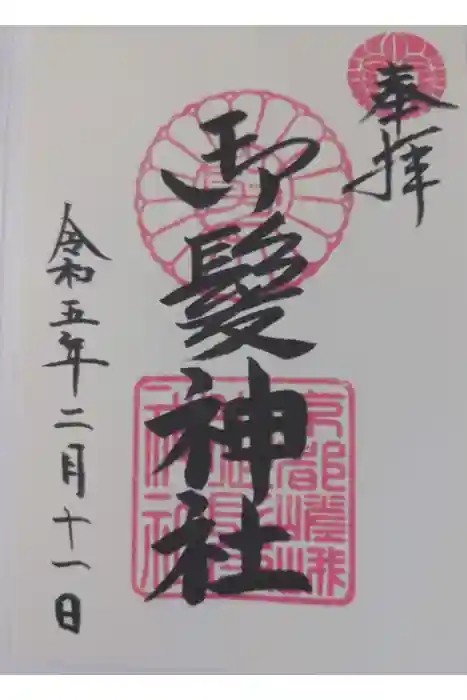 奉拝
御髪神社
令和五年二月十一日
京都嵯峨
神社